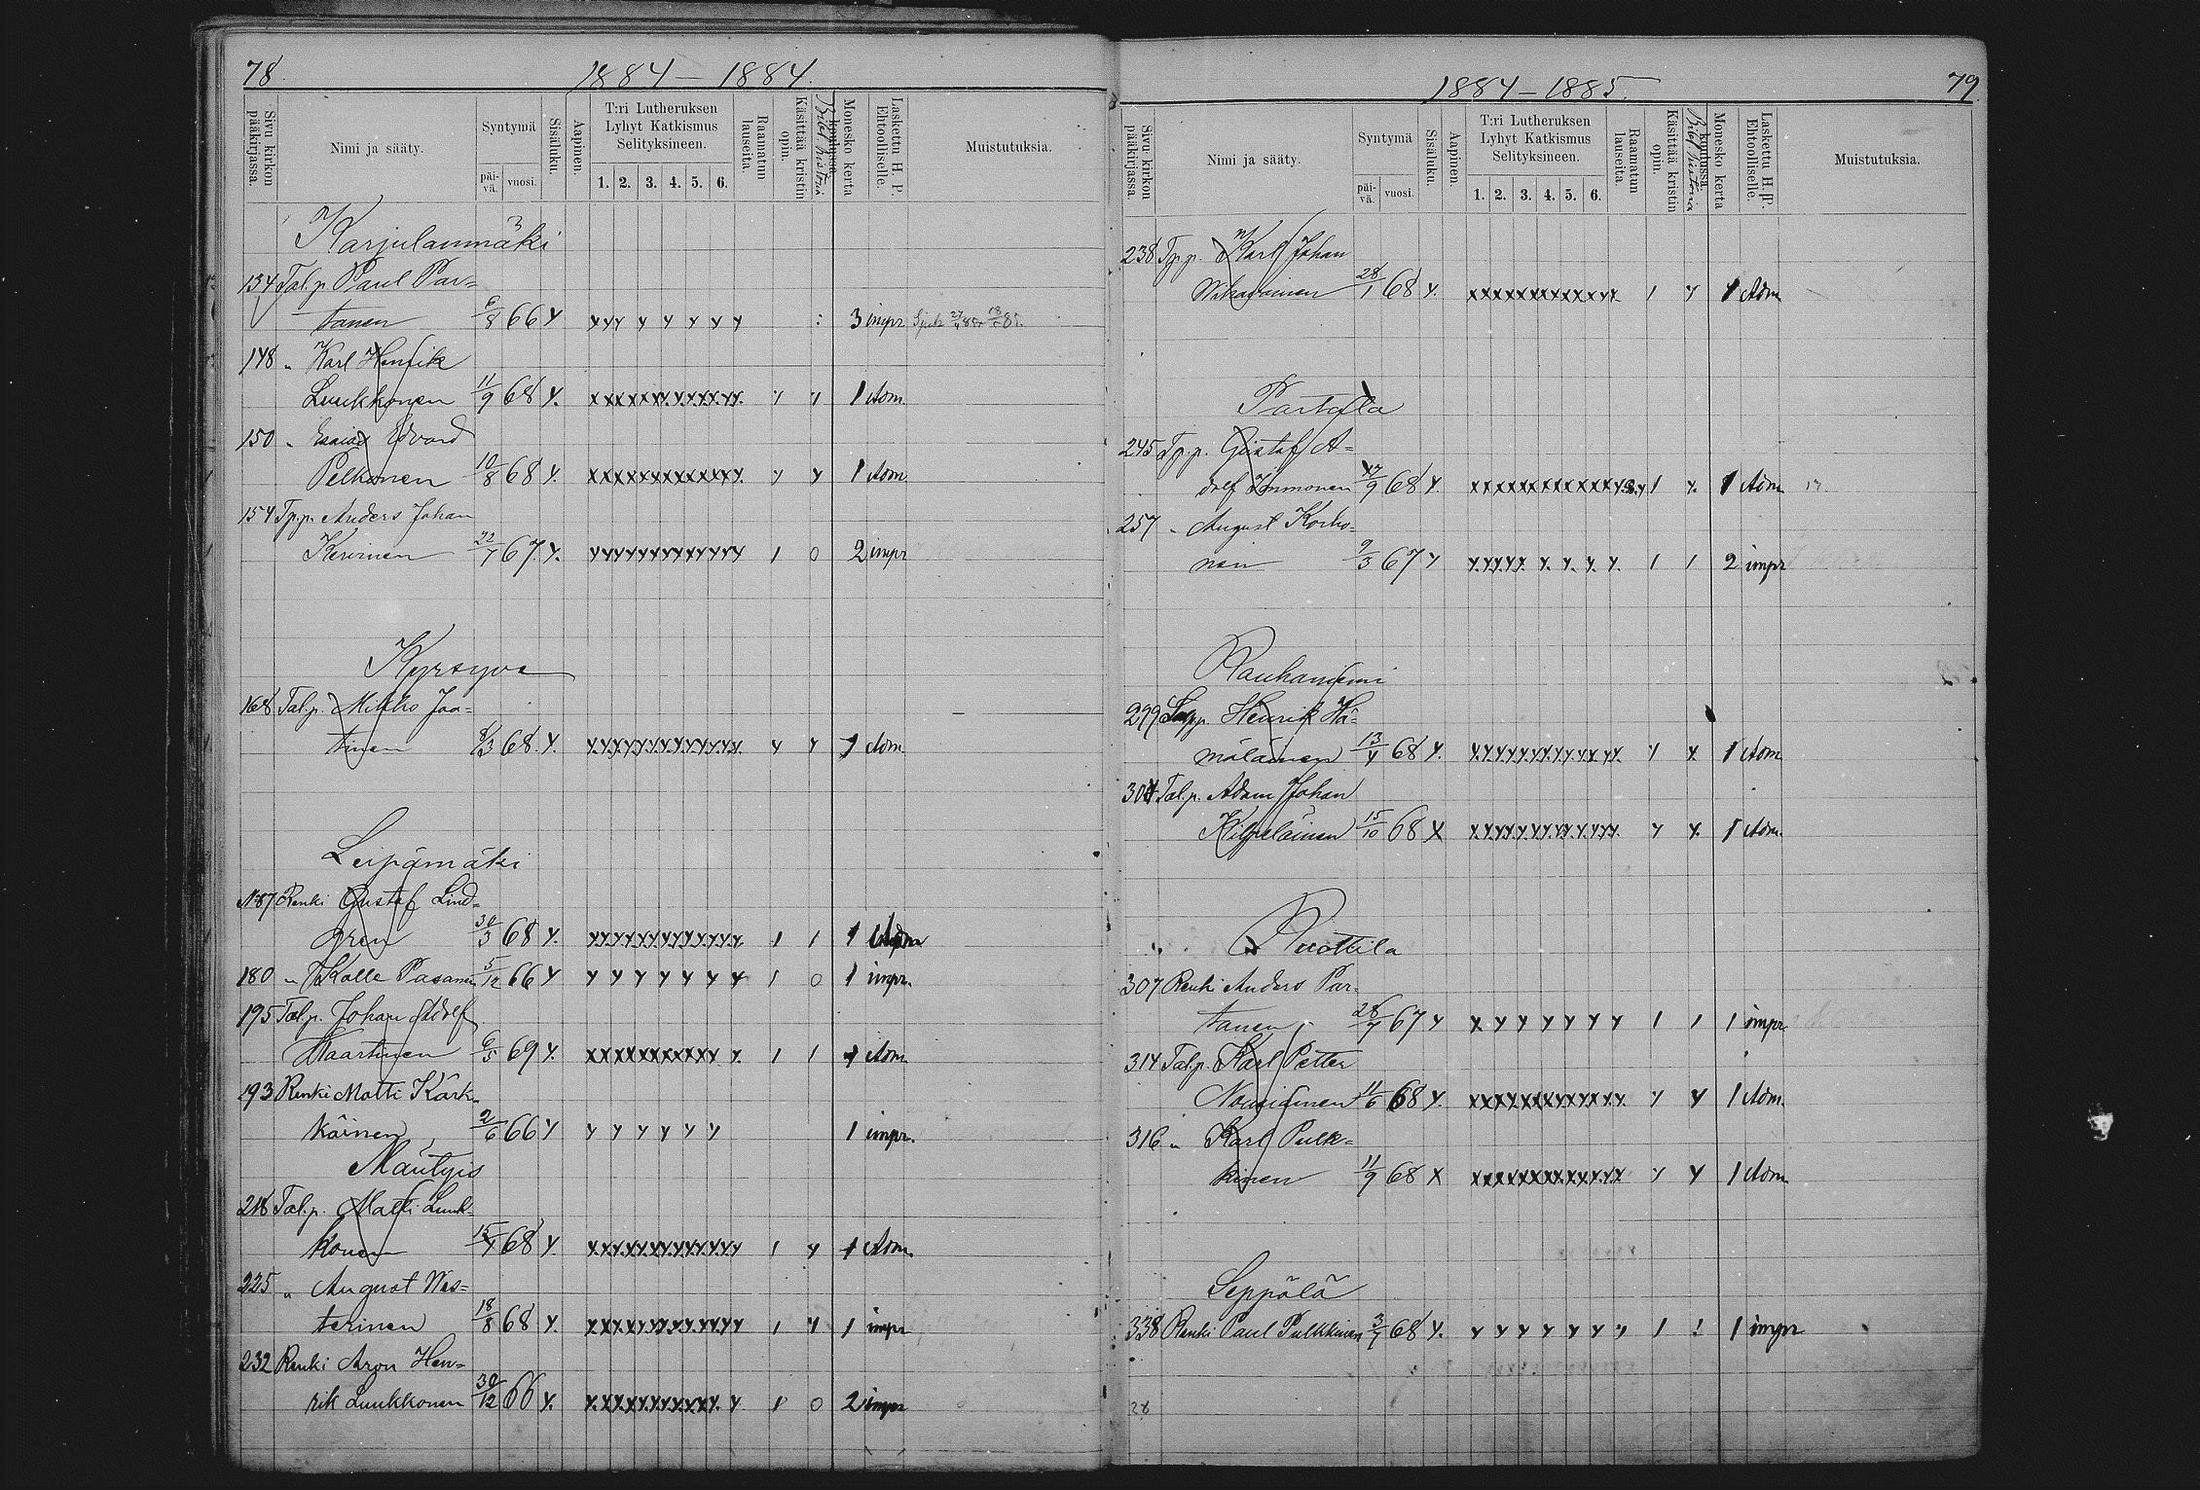 78. 1884 — 1884.
Sivu kirkon pääkirjassa. Nimi ja sääty. Syntymä päivä. vuosi. Sisäluku. Aapinen. T:ri Lutheruksen Lyhyt Katkismus Selityksineen. 1. 2. 3. 4. 5. 6. Raamatun lauseita. Käsittää kristin opin. Bibel historia Monesko kerta koulussa. Laskettu H. P. Ehtoolliselle. Muistutuksia.
Karjulanmäki
134 Tal.p. Paul Par=
tanen 6/8 66 x x x x x x x x x 3 impr
148 „ Karl Henrik
Luukkonen 11/9 68 x. x x x x x x x x x x x x x x 1 Adm.
150 „ Esaias Edvard
Pelkonen 10/8 68 x. x x x x x x x x x x x x x x 1 Adm.
154 Tp.p. Anders Johan
Kervinen 22/7 67. x. x x x x x x x x x x x x 1 0 2 impr
168 Tal.p. Mikko Jaa=
tinen 8/3 68. x. x x x x x x x x x x x x x x 1 Adm
Leipämäki
187 Renki Gustaf Lind=
gren 30/3 68 x. x x x x x x x x x x x x 1 1 1
180 „ Kalle Pasanen 5/12 66 x x x x x x x x 1 0 1 impr.
195 Tal.p. Johan Adolf
Maartinen 6/5 69 x. x x x x x x x x x x x 1 1 1 Adm
193 Renki Matti Kärk=
käinen 2/6 66 x x x x x x x 1 impr.
Mäntyis
218 Tal.p. Matti Luuk=
konen 15/4 68 x. x x x x x x x x x x x x 1 x 1 Adm.
225 „ August Wes=
terinen 18/8 68 x. x x x x x x x x x x x x 1 x 1 impr
232 Renki Aron Hen=
rik Luukkonen 30/12 66 x. x x x x x x x x x x x 1 0 2 impr
1884 — 1885. 79
Sivu kirkon pääkirjassa. Nimi ja sääty. Syntymä päivä. vuosi. Sisäluku. Aapinen. T:ri Lutheruksen Lyhyt Katkismus Selityksineen. 1. 2. 3. 4. 5. 6. Raamatun lauseita. Käsittää kristin opin. Bibel historia Monesko kerta koulussa. Laskettu H. P. Ehtoolliselle. Muistutuksia.
238 Tp.p. Karl Johan
28/1 68 x. x x x x x x x x x x x x 1 x 1 Adm
Partala
245 Tp.p. Gustaf A=
dolf Immonen 17/9 68 x. x x x x x x x x x x x x 1 x. 1 Adm
257 „ August Korho=
nen 9/3 67 x x x x x x x x x x 1 1 2 impr
Rauhaniemi
299 Henrik Hä=
mäläinen 13/4 68 x. x x x x x x x x x x x x x x. 1 Adm
304 Tal.p. Adam Johan
Kilpeläinen 15/10 68 x x x x x x x x x x x x x x x. 1 Adm.
Ruottila
307 Renki Anders Par=
tanen 28/7 67 x x x x x x x x 1 1 1 impr
314 Tal.p. Karl Petter
Nousiainen 11/6 68 x. x x x x x x x x x x x x x x 1 Adm.
316 „ Karl Pulk=
kinen 11/9 68 x x x x x x x x x x x x x x x 1 Adm
Seppälä
338 Renki Paul Pulkkinen 3/7 68 x. x x x x x x x 1 1 impr
28